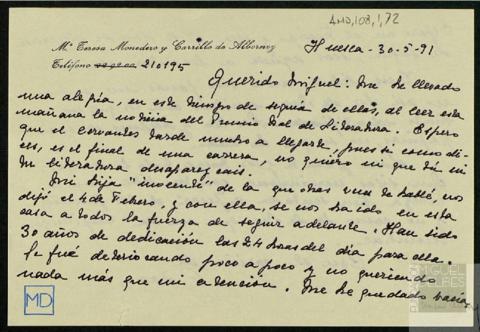 AMD,108,1,72
Mª Teresa Monedero y Carrillo de Albornoz
Huesca - 30-5-91
Teléfono 210195
Querido Miguel: Me he llevado
una alegría, en este tiempo de sequía de ellas, al leer esta
mañana la noticia del Premio Nal de Literatura. Espero
que el Cervantes tarde mucho a llegarte, pues si como di-
ces, es el final de una carrera, no quiero ni que tú ni
tu literatura desaparezcais.
Mi hija "inocente" de la que otras veces te hablé, nos
dejó el 4 de Febrero, y con ella, se nos ha ido en esta
casa a todos la fuerza de seguir adelante. Han sido
30 años de dedicación las 24 horas del día para ella.
Se fué poco a poco y no queriendo
nada más que mi atención. Me he quedado vacía,
MD
MIGUEL
DELIBES